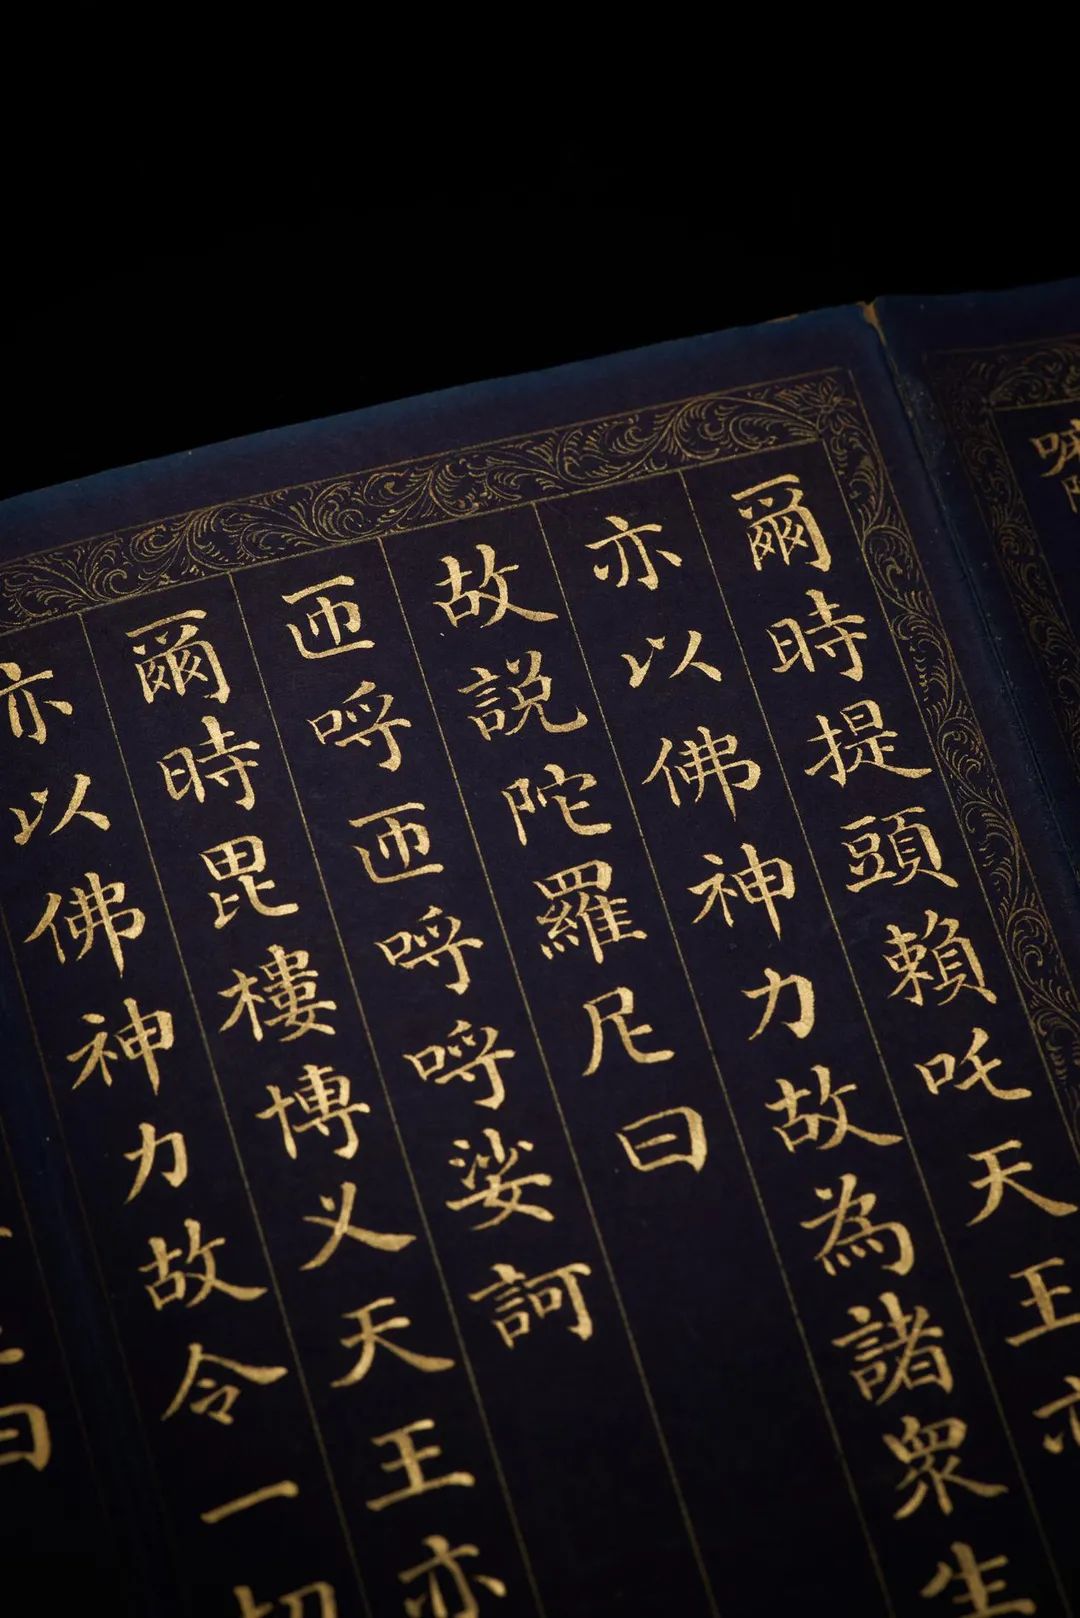 爾時提頭賴吒天王亦
亦以佛神力故為諸衆生
故説陀羅尼曰
匝呼匝呼呼娑訶
爾時毘樓博义天王亦
亦以佛神力故令一切
曰